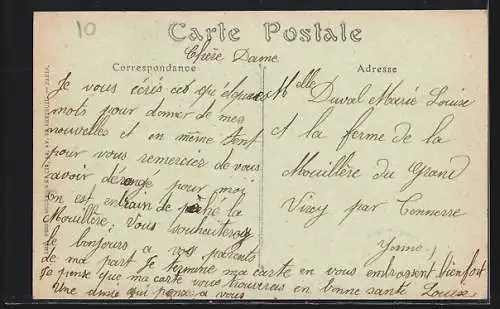 10
Carte Postale
Chère Dame
Correspondance
Adresse
Je vous écris ces quelques
mots pour donner de mes
nouvelles et en même tent
pour vous remercier de vous
avoir dérangé pour moi
on est entrain de pêché la
Mouillère. Vous souhaiterez
le bonjours a vos parents
de ma part Je termine ma carte en vous embrassent bien fort
Je pense que ma carte vous trouveras en bonne santé Louise
Une amie qui pense a vous
Melle Duval Marie Louise
A la ferme de la
Mouillère du Grand
Virey par Tonnerre
Yonne